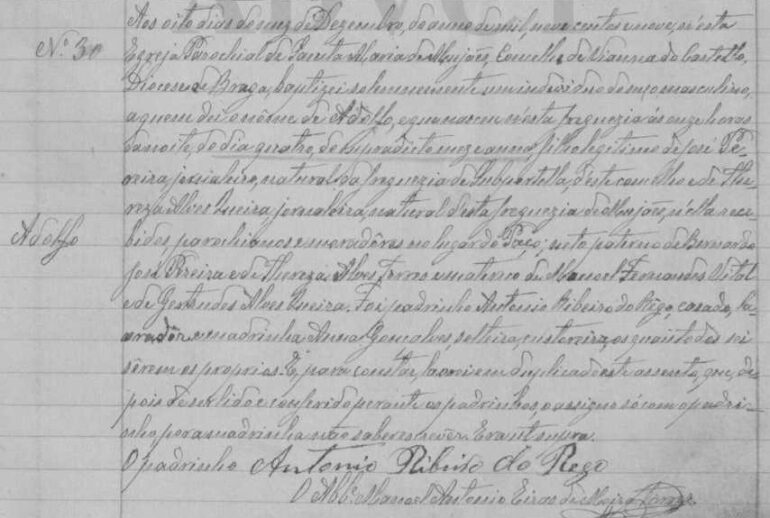 Nº 30
Aos oito dias do mez de Dezembro, do anno de mil, nove centos e nove, n'esta
Egreja Parochial de Santa Maria de Mujães, Concelho de Vianna do Castello,
Diocese de Braga, baptizei solemnemente um individuo do sexo masculino,
a quem dei o nome de Adolfo, e que nasceu n'esta freguezia ás onze horas
da noite, do dia quatro, do supradicto mez e anno, filho legitimo de José Pe-
reira, jornaleiro, natural da freguezia de Subportella, d'este concelho e de The-
reza Alves Queira, jornaleira, natural d'esta freguezia de Mujães, n'ella rece-
bidos, parochianos e moradôres no lugar do Paço; neto paterno de Bernardo
José Pereira e de Thereza Alves Torres e materno de Manoel Fernandes Vital
e de Gertrudes Alves Queira. Foi padrinho Antonio Ribeiro do Rêgo, casado, la-
vradôr, e madrinha Anna Gonçalves, solteira, costureira, os quaes todos sei
sêrem os proprios. E, para constar, lavrei em duplicado este assento, que, de-
pois de ser lido e conferido perante os padrinhos, o assigno só com o padri-
nho por a madrinha não saber escrever. Era ut supra.
Adolfo
O padrinho Antonio Ribeiro do Rego
O Abbe Manoel Antonio Eiras de Meira Torres